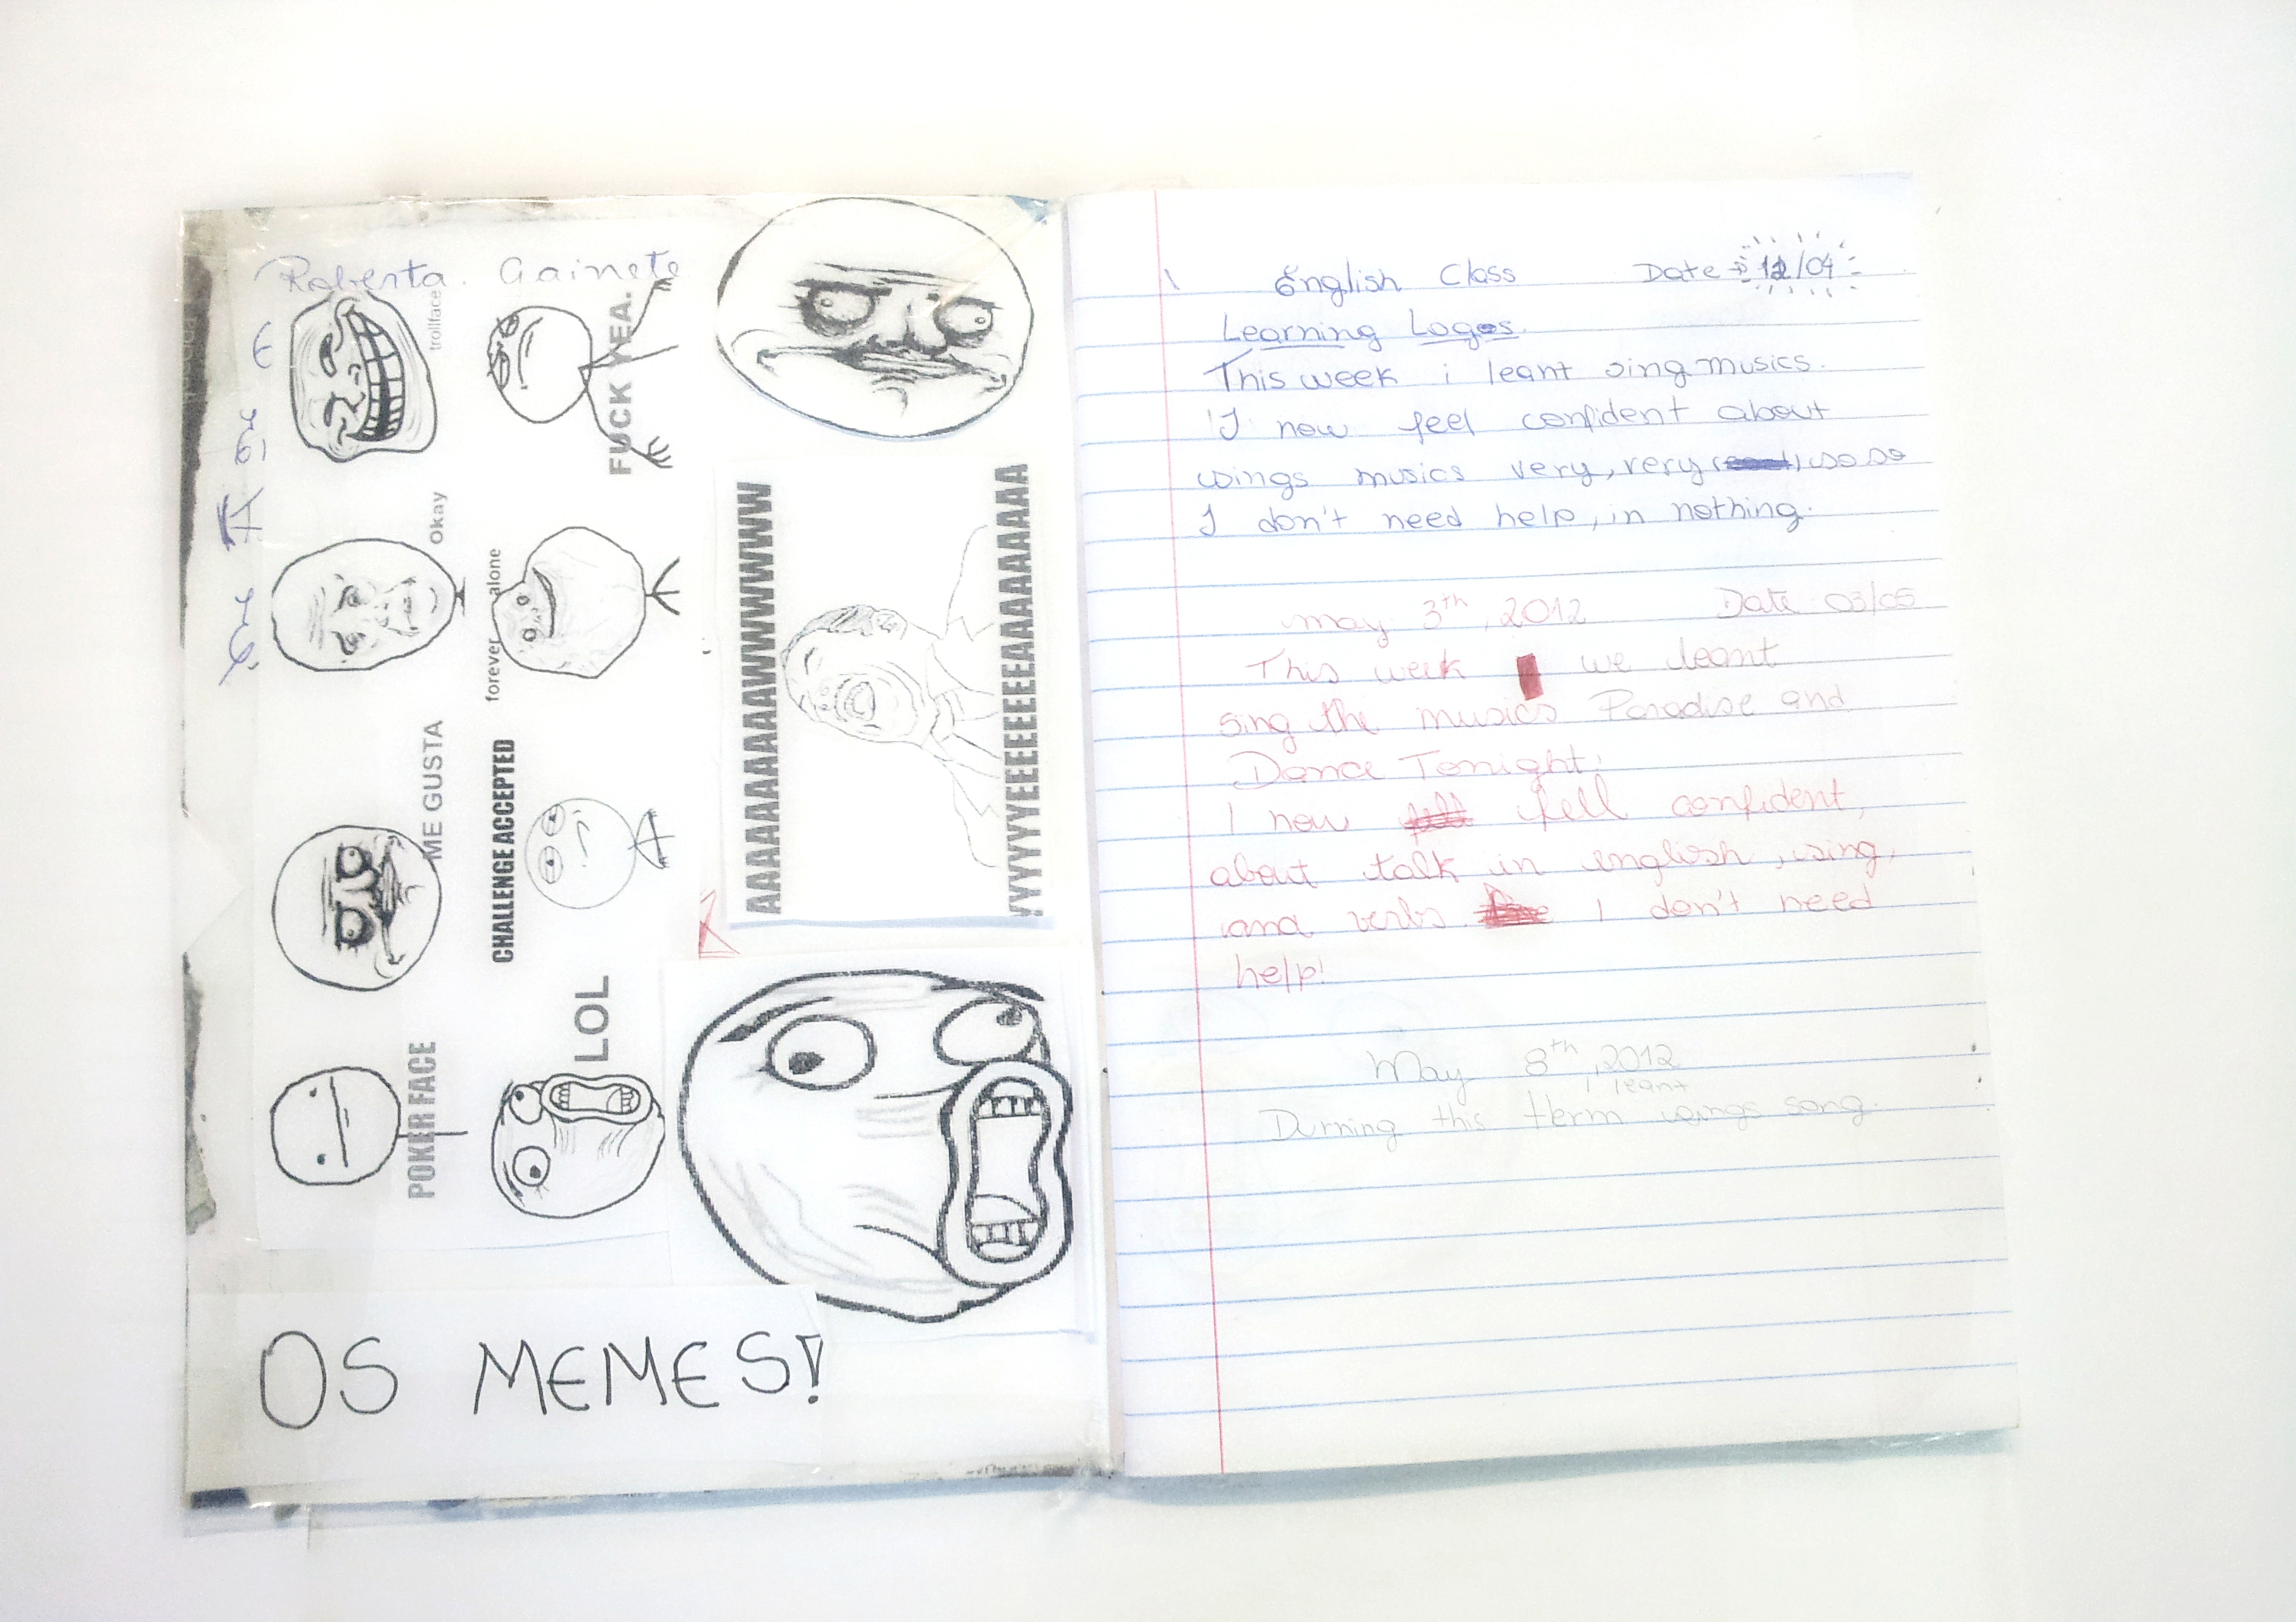 Roberta. Gainete
trollface
FUCK YEA.
Okay
forever alone
ME GUSTA
CHALLENGE ACCEPTED
POKER FACE
LOL
AAAAAAAAAAAWWWWWWW
YYYYYEEEEEEEAAAAAAAAA
OS MEMES!
English Class Date 12/04
Learning Logos.
This week i leant sing musics.
I now feel confident about
wings musics very, very so so
I don't need help, in nothing.
may 3th, 2012 Date 03/05
This week we leant
sing the musics Paradise and
Dance Tonight.
I now fell confident,
about talk in english, using,
and verbs. I don't need
help!
May 8th, 2012
leant
Durning this term song.